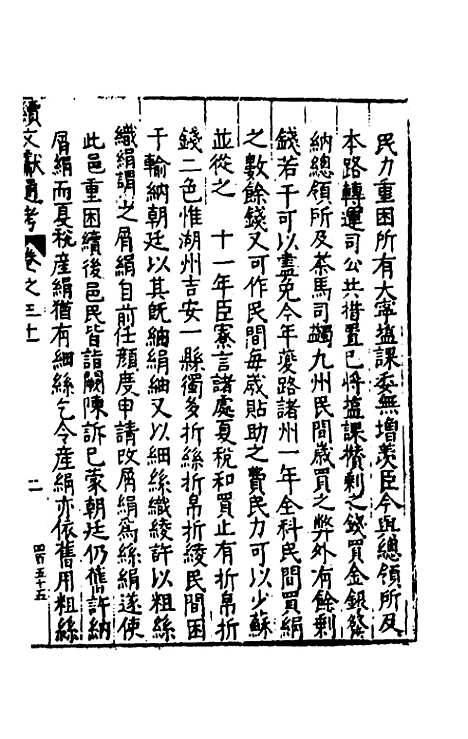 民力重困所有大寧塩課委無增羨臣今與總領所及
本路轉運司公共措置已將塩課攅剰之錢買金銀發
納總領所及茶馬司蠲九州民間歲買之弊外有餘剰
錢若干可以盡免今年夔路諸州一年全科民間買絹
之數餘錢又可作民間毎歲貼助之費民力可以少蘇
並從之　十一年臣寮言諸處夏稅和買止有折帛折
錢二色惟湖州吉安一縣獨多折絲折帛折綾民間困
于輸納朝廷以其旣納絹紬又以細絲織綾許以粗絲
織絹謂之屑絹自前任顔度申請改屑絹爲絲絹遂使
此邑重困續後邑民皆詣闕陳訴已蒙朝廷仍舊許納
屑絹而夏稅産絹猶有細絲乞令産絹亦依舊用粗絲
續文獻通考　卷之三十　二　四百五十五